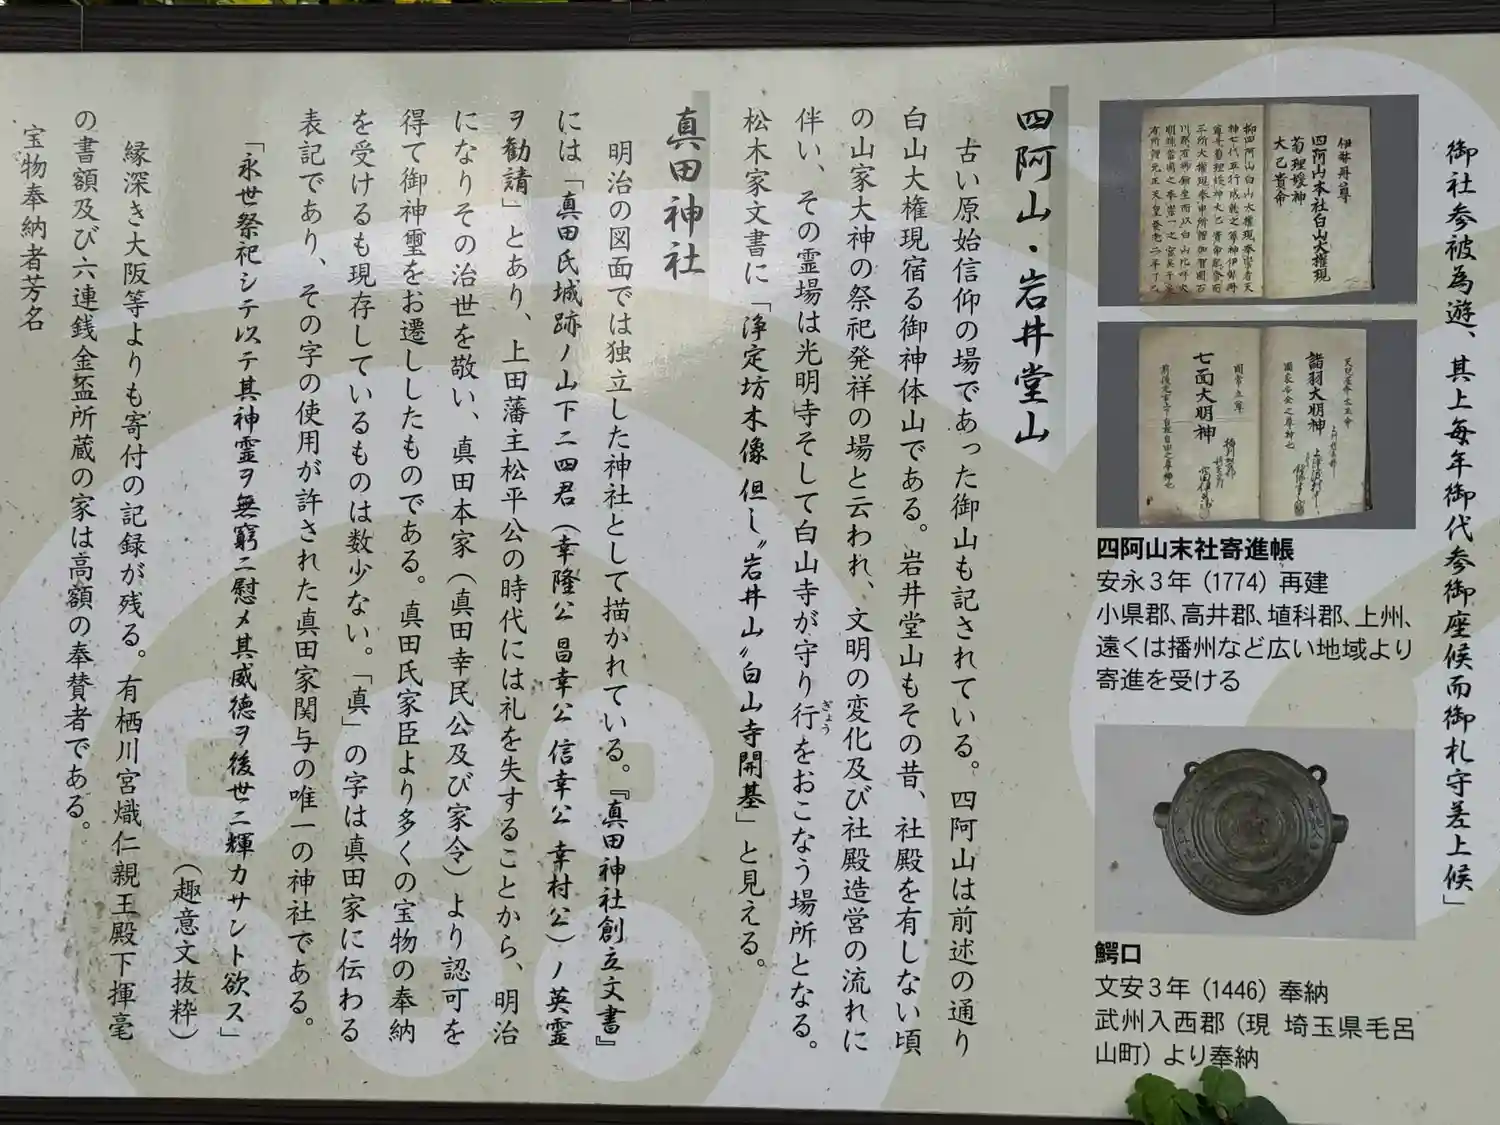 御社参被為遊、其上毎年御代参御座候而御札守差上候」
伊弉冊尊
四阿山本社白山大権現
菊理媛神
大己貴命
諸羽大明神
七面大明神
四阿山末社寄進帳
安永3年（1774）再建
小県郡、高井郡、埴科郡、上州、
遠くは播州など広い地域より
寄進を受ける
鰐口
文安3年（1446）奉納
武州入西郡（現 埼玉県毛呂
山町）より奉納
四阿山・岩井堂山
古い原始信仰の場であった御山も記されている。四阿山は前述の通り
白山大権現宿る御神体山である。岩井堂山もその昔、社殿を有しない頃
の山家大神の祭祀発祥の場と云われ、文明の変化及び社殿造営の流れに
伴い、その霊場は光明寺そして白山寺が守り行をおこなう場所となる。
ぎょう
松木家文書に「浄定坊木像 但し〝岩井山〟白山寺開基」と見える。
真田神社
明治の図面では独立した神社として描かれている。『真田神社創立文書』
には「真田氏城跡ノ山下ニ四君（幸隆公 昌幸公 信幸公 幸村公）ノ英霊
ヲ勧請」とあり、上田藩主松平公の時代には礼を失することから、明治
になりその治世を敬い、真田本家（真田幸民公及び家令）より認可を
得て御神璽をお遷ししたものである。真田氏家臣より多くの宝物の奉納
を受けるも現存しているものは数少ない。「真」の字は真田家に伝わる
表記であり、その字の使用が許された真田家関与の唯一の神社である。
「永世祭祀シテ以テ其神霊ヲ無窮ニ慰メ其威徳ヲ後世ニ輝カサント欲ス」
（趣意文抜粋）
縁深き大阪等よりも寄付の記録が残る。有栖川宮熾仁親王殿下揮毫
の書額及び六連銭金盃所蔵の家は高額の奉賛者である。
宝物奉納者芳名